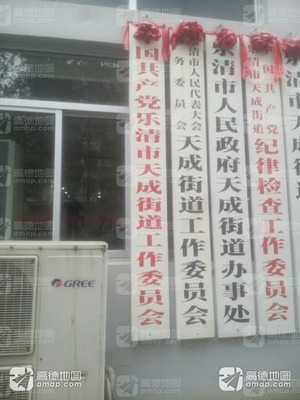 国共产党乐清市天成街道工作委员会
清市人民代表大会
务委员会
天成街道工作委员会
乐清市人民政府天成街道办事处
国共产党
清市天成街道
纪律检查工作委员会
GREE
高德地图
amap.com